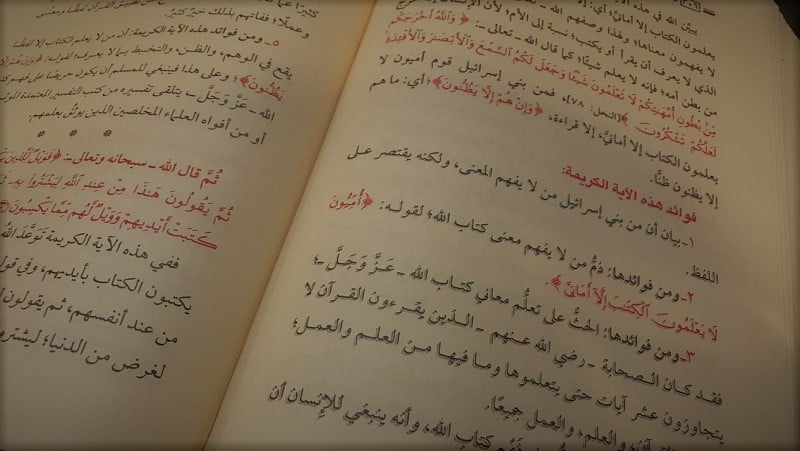 يعلمون الكتاب إلا أمانيَّ؛ أي: إلا
لا يفهمون معناها؛ وهذا وصفهم الله
الذي لا يعرف أن يقرأ أو يكتب؛ نسبة إلى الأم؛ لأن الإنسان
من بطن أمه؛ فإنه لا يعلم شيئًا؛ كما قال الله ـ تعالى ـ: ﴿وَٱللَّهُ أَخْرَجَكُم
مِّنۢ بُطُونِ أُمَّهَٰتِكُمْ لَا تَعْلَمُونَ شَيْـًٔا وَجَعَلَ لَكُمُ ٱلسَّمْعَ وَٱلْأَبْصَٰرَ وَٱلْأَفْـِٔدَةَ
لَعَلَّكُمْ تَشْكُرُونَ﴾ [النحل: ٧٨]، فمن بني إسرائيل قوم أميون لا
يعلمون الكتاب إلا أمانيَّ، إلا قراءة، ﴿وَإِنْ هُمْ إِلَّا يَظُنُّونَ﴾؛ أي: ما هم
إلا يظنون ظنًّا.
فوائد هذه الآية الكريمة:
١ـ بيان أن من بني إسرائيل من لا يفهم المعنى، ولكنه يقتصر على
اللفظ.
٢ـ ومن فوائدها: ذمُّ من لا يفهم معنى كتاب الله؛ لقوله: ﴿أُمِّيُّونَ
لَا يَعْلَمُونَ ٱلْكِتَٰبَ إِلَّآ أَمَانِيَّ﴾.
٣ـ ومن فوائدها: الحثُّ على تعلُّم معاني كتاب الله ـ عَزَّ وَجَلَّ ـ؛
فقد كان الصحابة ـ رضي الله عنهم ـ الذين يقرءون القرآن لا
يتجاوزون عشر آيات حتى يتعلموها وما فيها من العلم والعمل؛
والعلم، والعمل جميعًا.
كتاب الله، وأنه ينبغي للإنسان أن
وعملًا؛ ففاتهم بذلك خيرٌ كثيرٌ.
٥ـ ومن فوائد هذه الآية الكريمة: أن من لا يعلم الكتاب إلا لفظًا
يقع في الوهم، والظن، والتخبط بما لا يعرف؛ لقوله: ﴿وَإِنْ هُمْ إِلَّا
يَظُنُّونَ﴾؛ وعلى هذا فينبغي للمسلم أن يكون حريصًا على فهم
الله ـ عَزَّ وَجَلَّ ـ يتلقى تفسيره من كتب التفسير المعتمدة
أو من أفواه العلماء المخلصين الذين يوثق بعلمهم.
* * *
ثُمَّ قال الله ـ سبحانه وتعالى ـ: ﴿فَوَيْلٌ لِّلَّذِينَ
ثُمَّ يَقُولُونَ هَٰذَا مِنْ عِندِ ٱللَّهِ لِيَشْتَرُوا۟ بِهِۦ
كَتَبَتْ أَيْدِيهِمْ وَوَيْلٌ لَّهُم مِّمَّا يَكْسِبُونَ
ففي هذه الآية الكريمة تَوَعَّدَ الله
يكتبون الكتاب بأيديهم، وفي
من عند أنفسهم، ثم يقولون
لغرض من الدنيا؛ ليشتروا